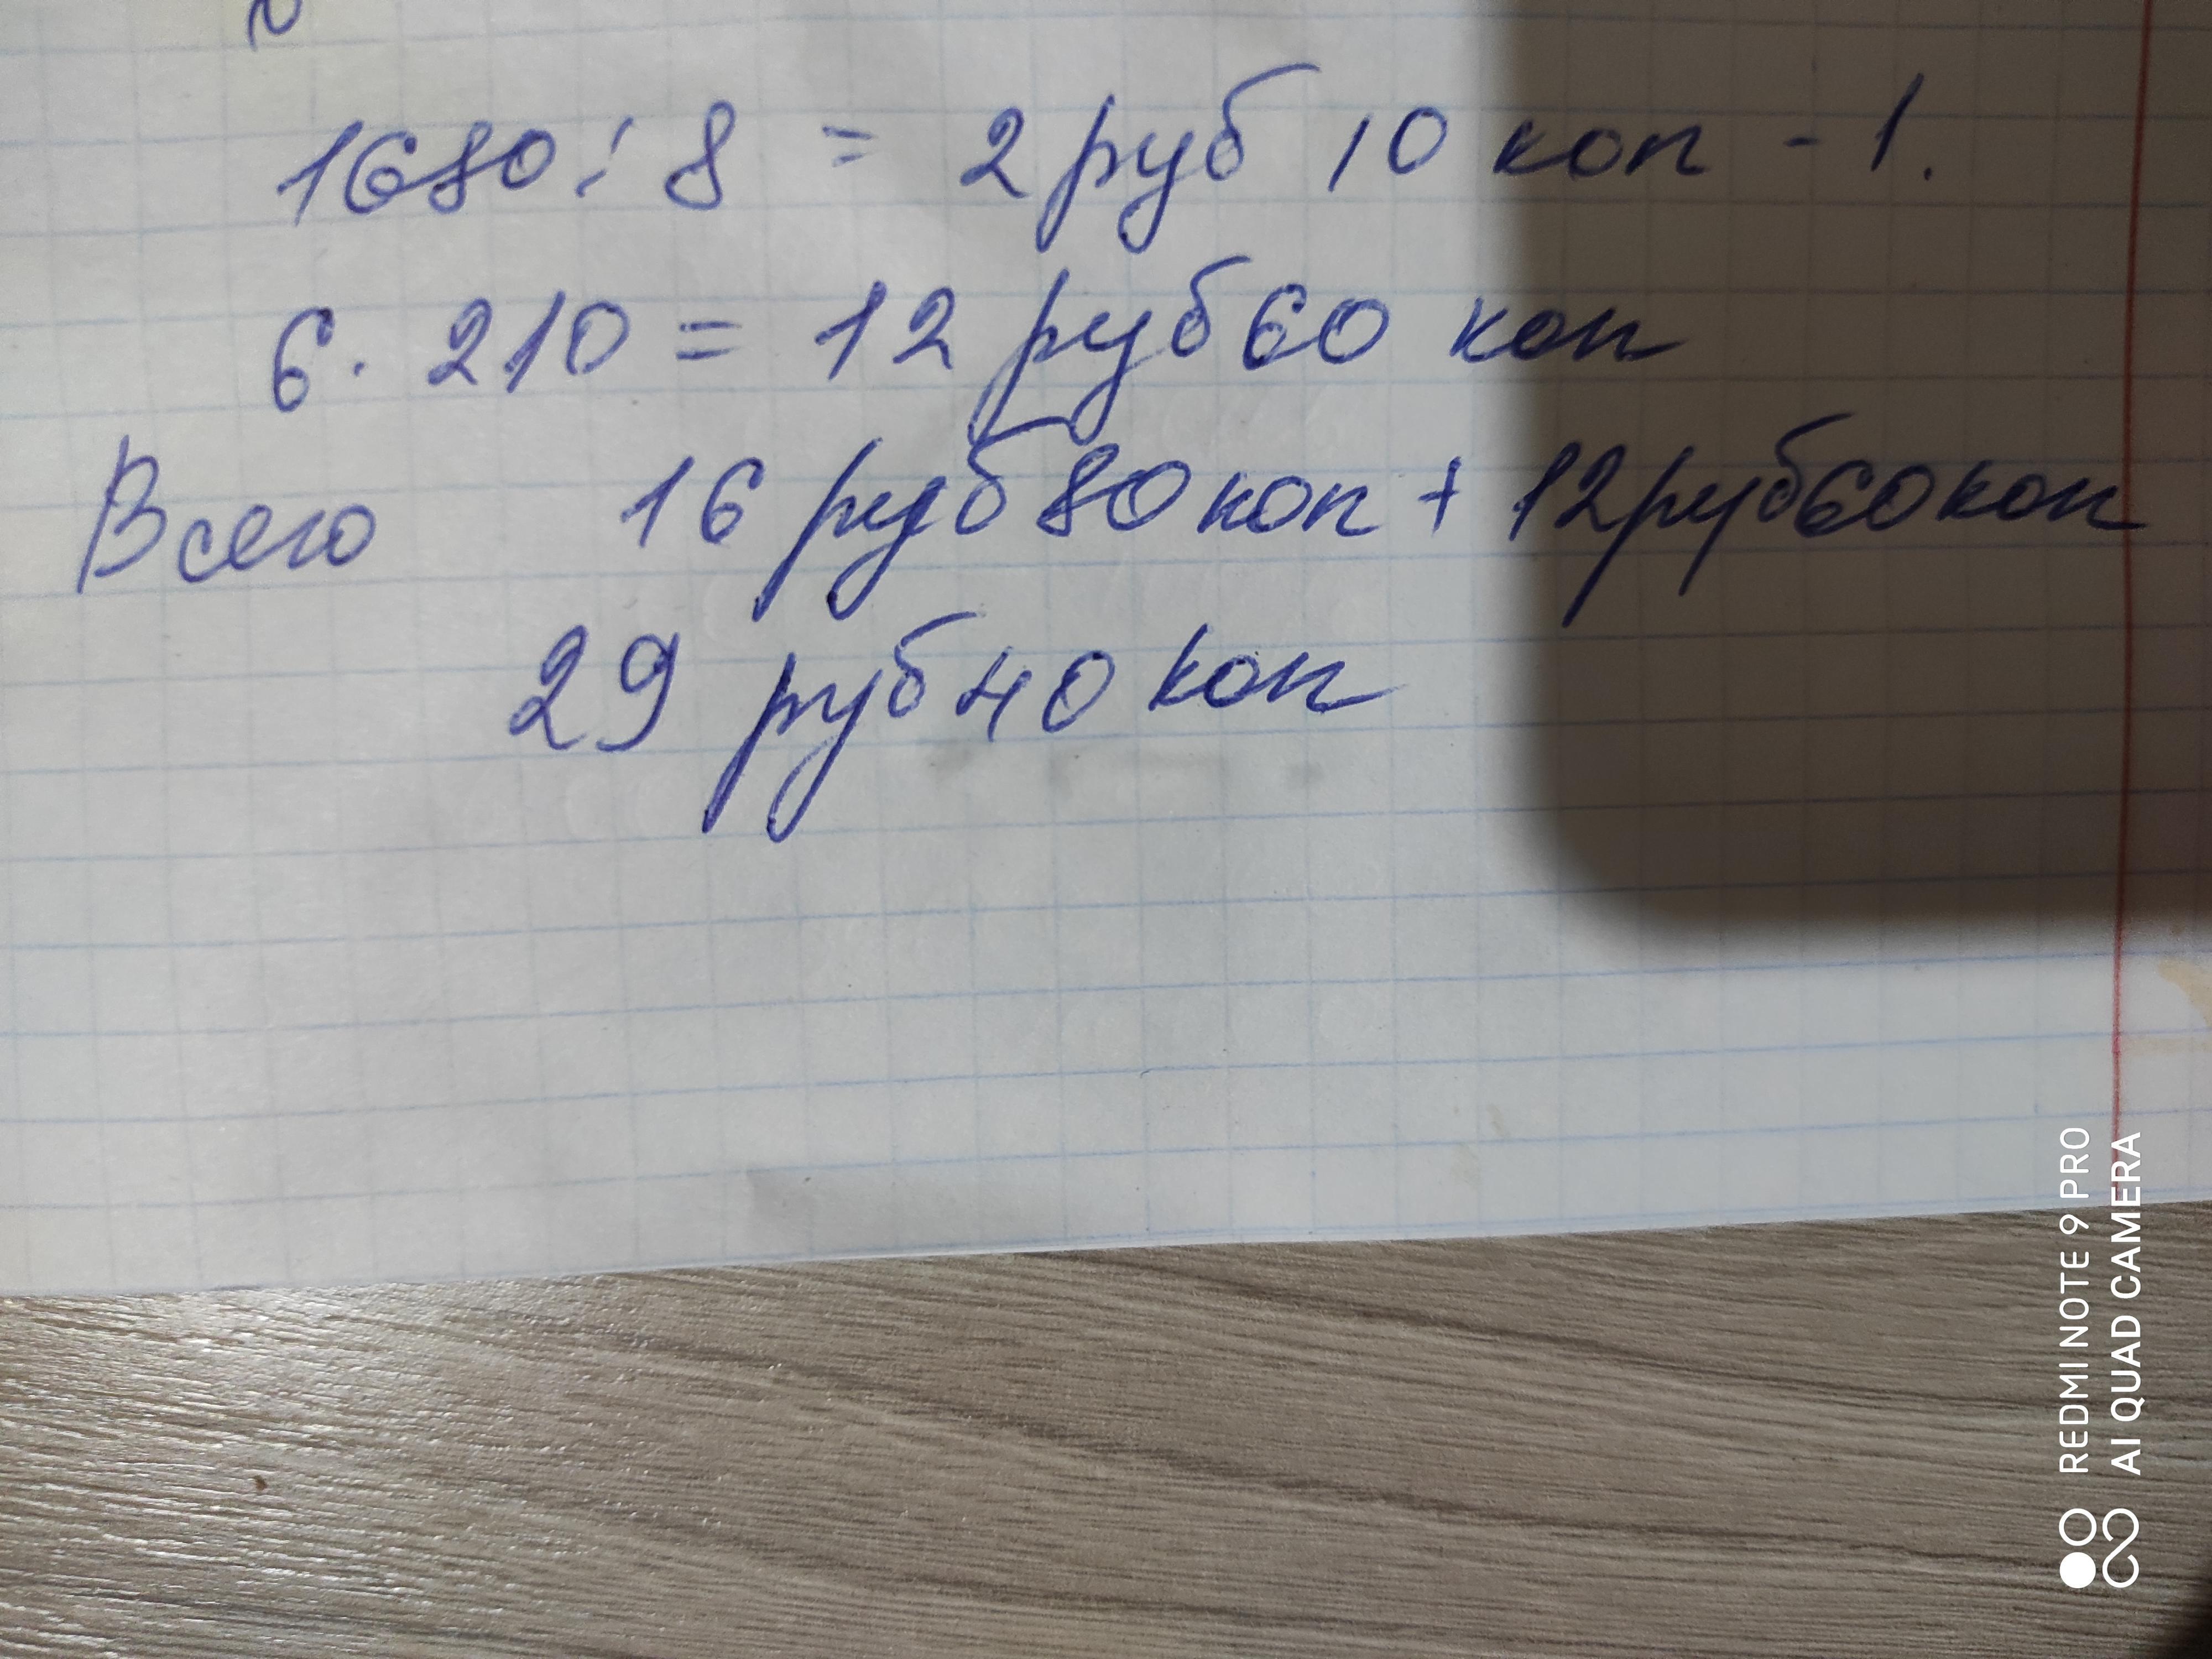 1680 : 8 = 2 руб 10 коп - 1.
6 · 210 = 12 руб 60 коп
Всего 16 руб 80 коп + 12 руб 60 коп
29 руб 40 коп
REDMI NOTE 9 PRO
AI QUAD CAMERA